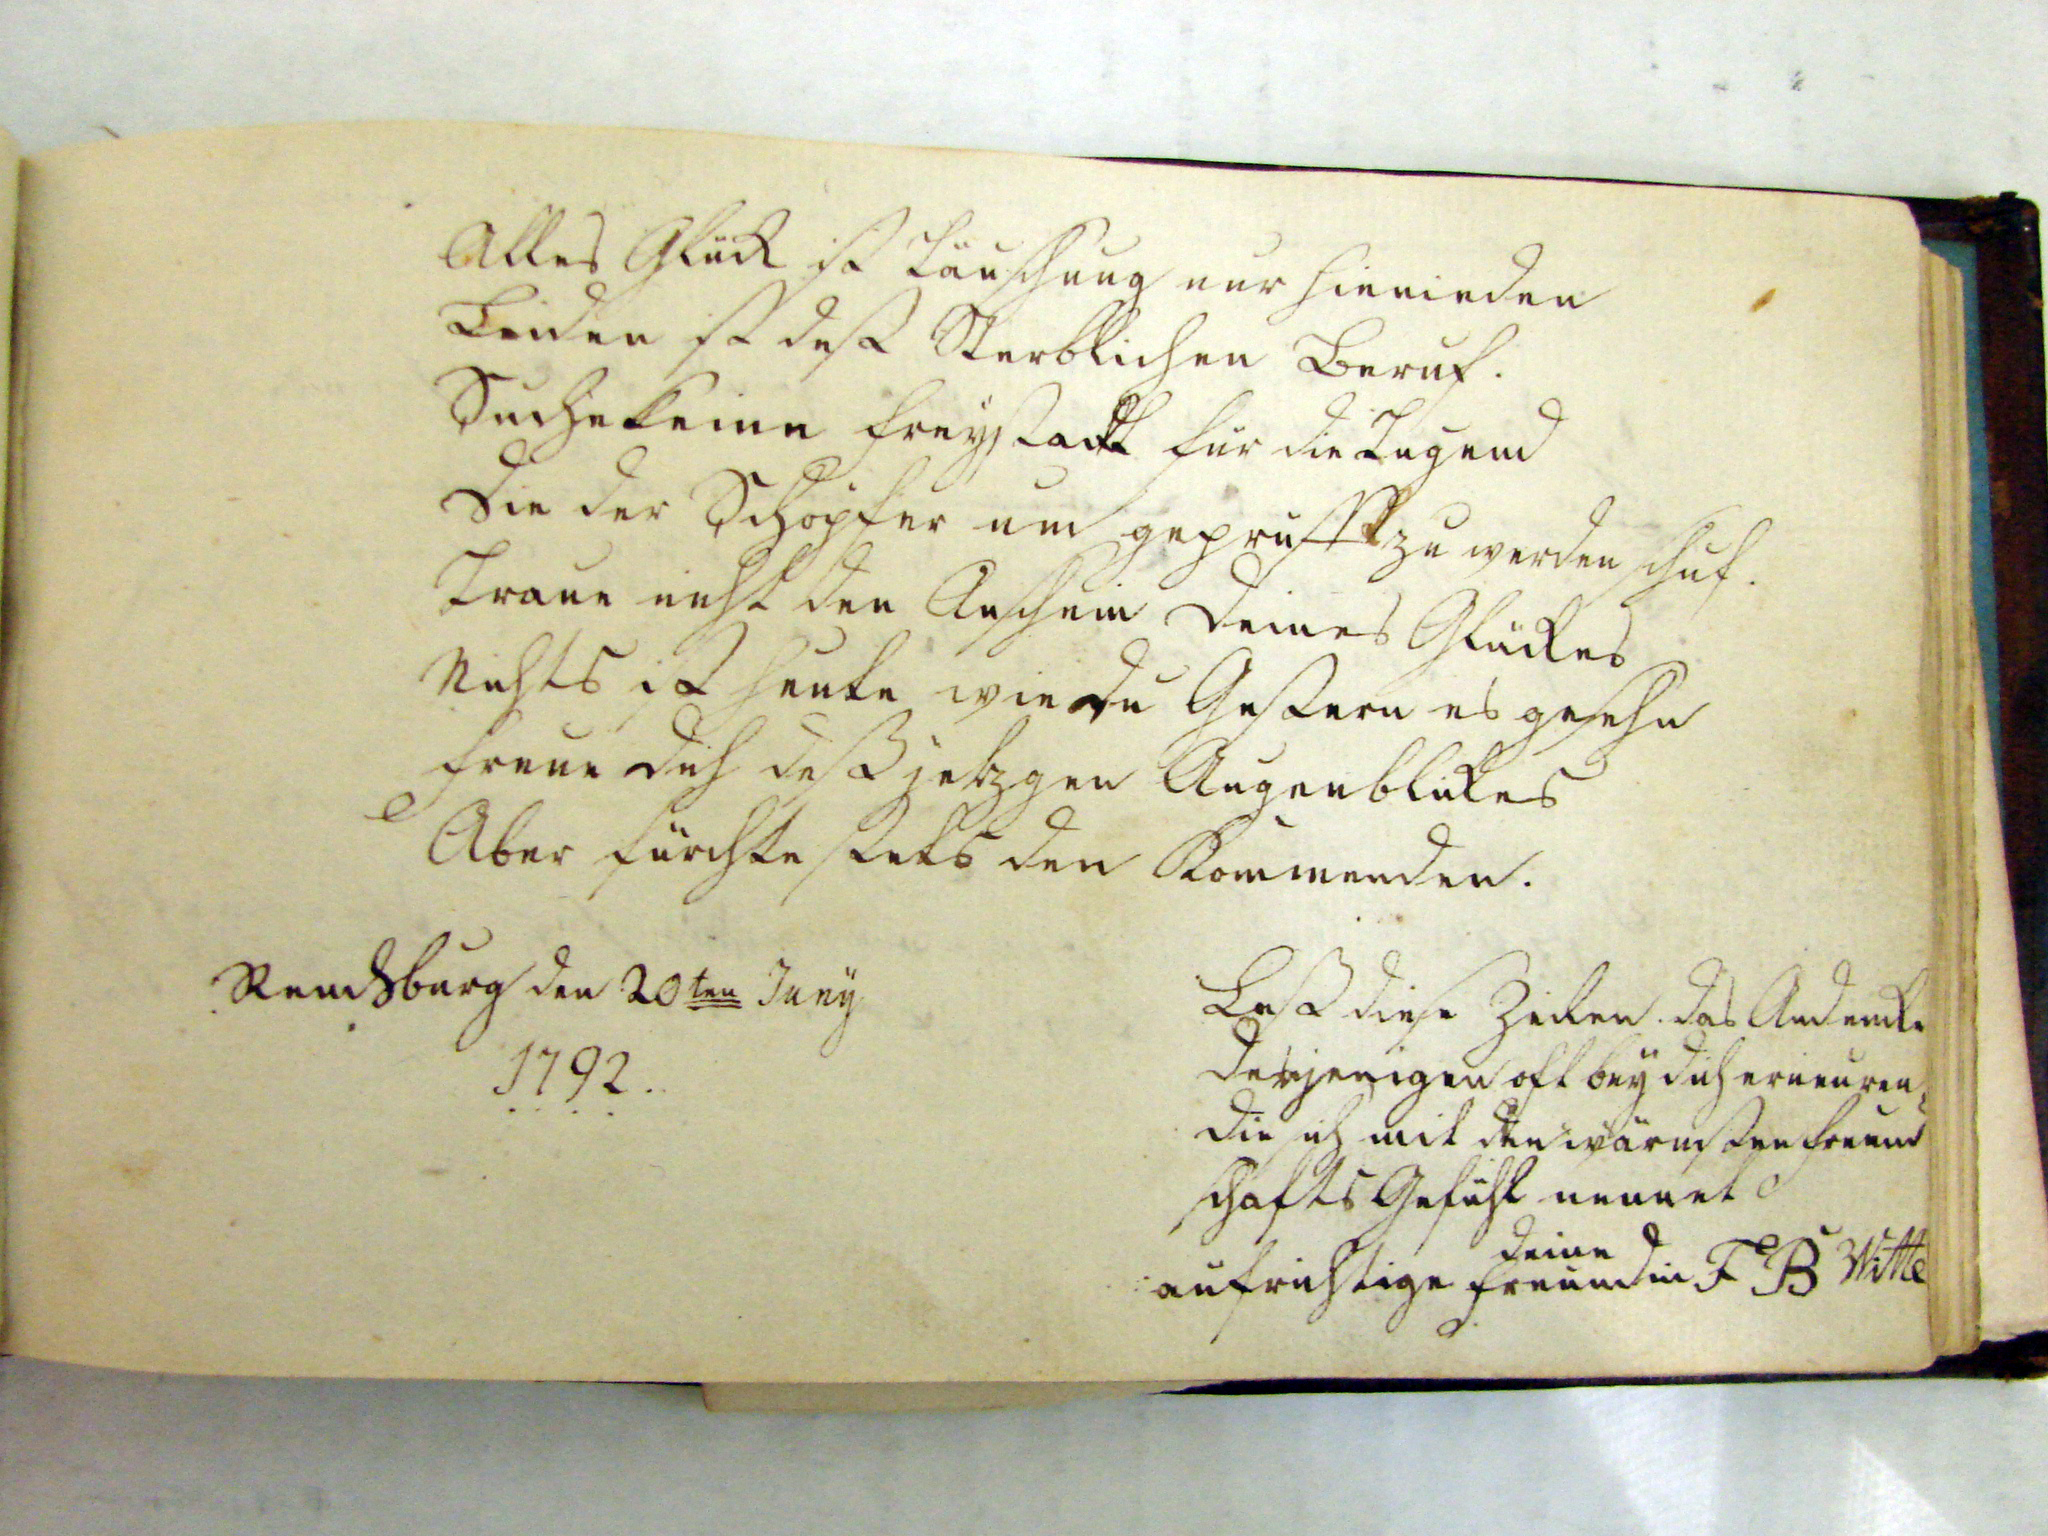 Alles Glück ist Täuschung nur hienieden
Leiden ist deß Sterblichen Beruf.
Suche keine Freystadt für die Tugend
Die der Schöpfer um geprüfft zu werden schuf.
Traue nicht den Anschein Deines Glückes
Nichts ist heute wie du Gestern es gesehn
Freue dich deß jetzgen Augenblickes
Aber fürchte stets den Kommenden.
Rendsburg den 20ten Juny
1792.
Laß diese Zeilen das Andencke
derjenigen oft bey dich erneuren,
die sich mit den wärmsten Freund
schafts Gefühl nennet
deine
aufrichtige Freundin F B Witte